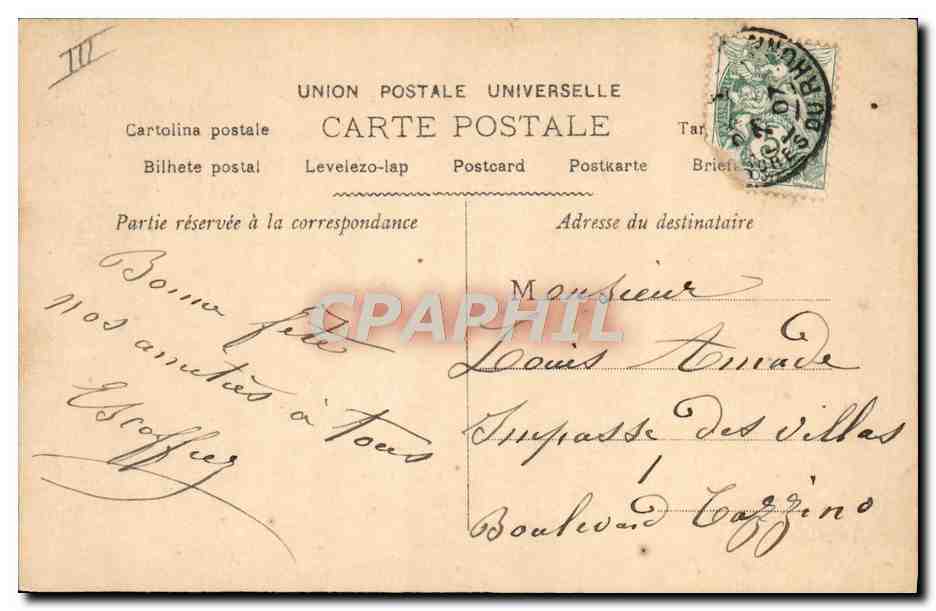 III
UNION POSTALE UNIVERSELLE
Cartolina postale CARTE POSTALE
Bilhete postal Levelezo-lap Postcard Postkarte
Partie réservée à la correspondance
Adresse du destinataire
Bonne fête
nos amitiés à tous
Escoffier
Monsieur
Louis Amade
Impasse des Villas
1
Boulevard Cazzino
CPAPHIL
DU RHONE
07